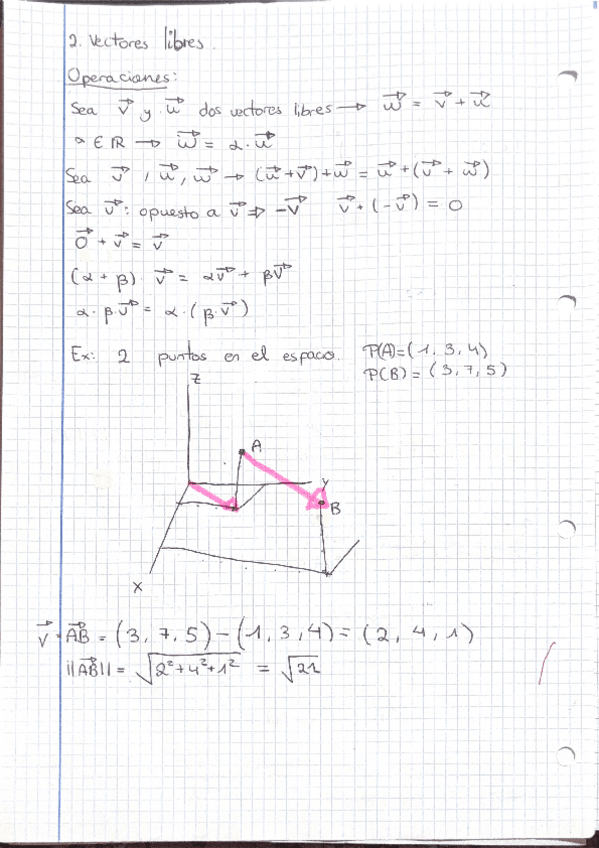 2. Vectores libres.
Operaciones:
Sea v⃗ y u⃗ dos vectores libres → w⃗ = v⃗ + u⃗
α ∈ ℝ → w⃗ = α · u⃗
Sea v⃗, u⃗, w⃗ → (u⃗+v⃗)+w⃗ = u⃗+(v⃗+w⃗)
Sea v⃗: opuesto a v⃗ ⇒ -v⃗ v⃗+(-v⃗) = 0
0⃗ + v⃗ = v⃗
(α + β) · v⃗ = αv⃗ + βv⃗
α · β · v⃗ = α · (β · v⃗)
Ex: 2 puntos en el espacio. P(A)=(1, 3, 4)
P(B) = (3, 7, 5)
Z
A
Y
B
X
v⃗ · AB⃗ = (3, 7, 5) - (1, 3, 4) = (2, 4, 1)
||AB⃗|| = √2²+4²+1² = √21